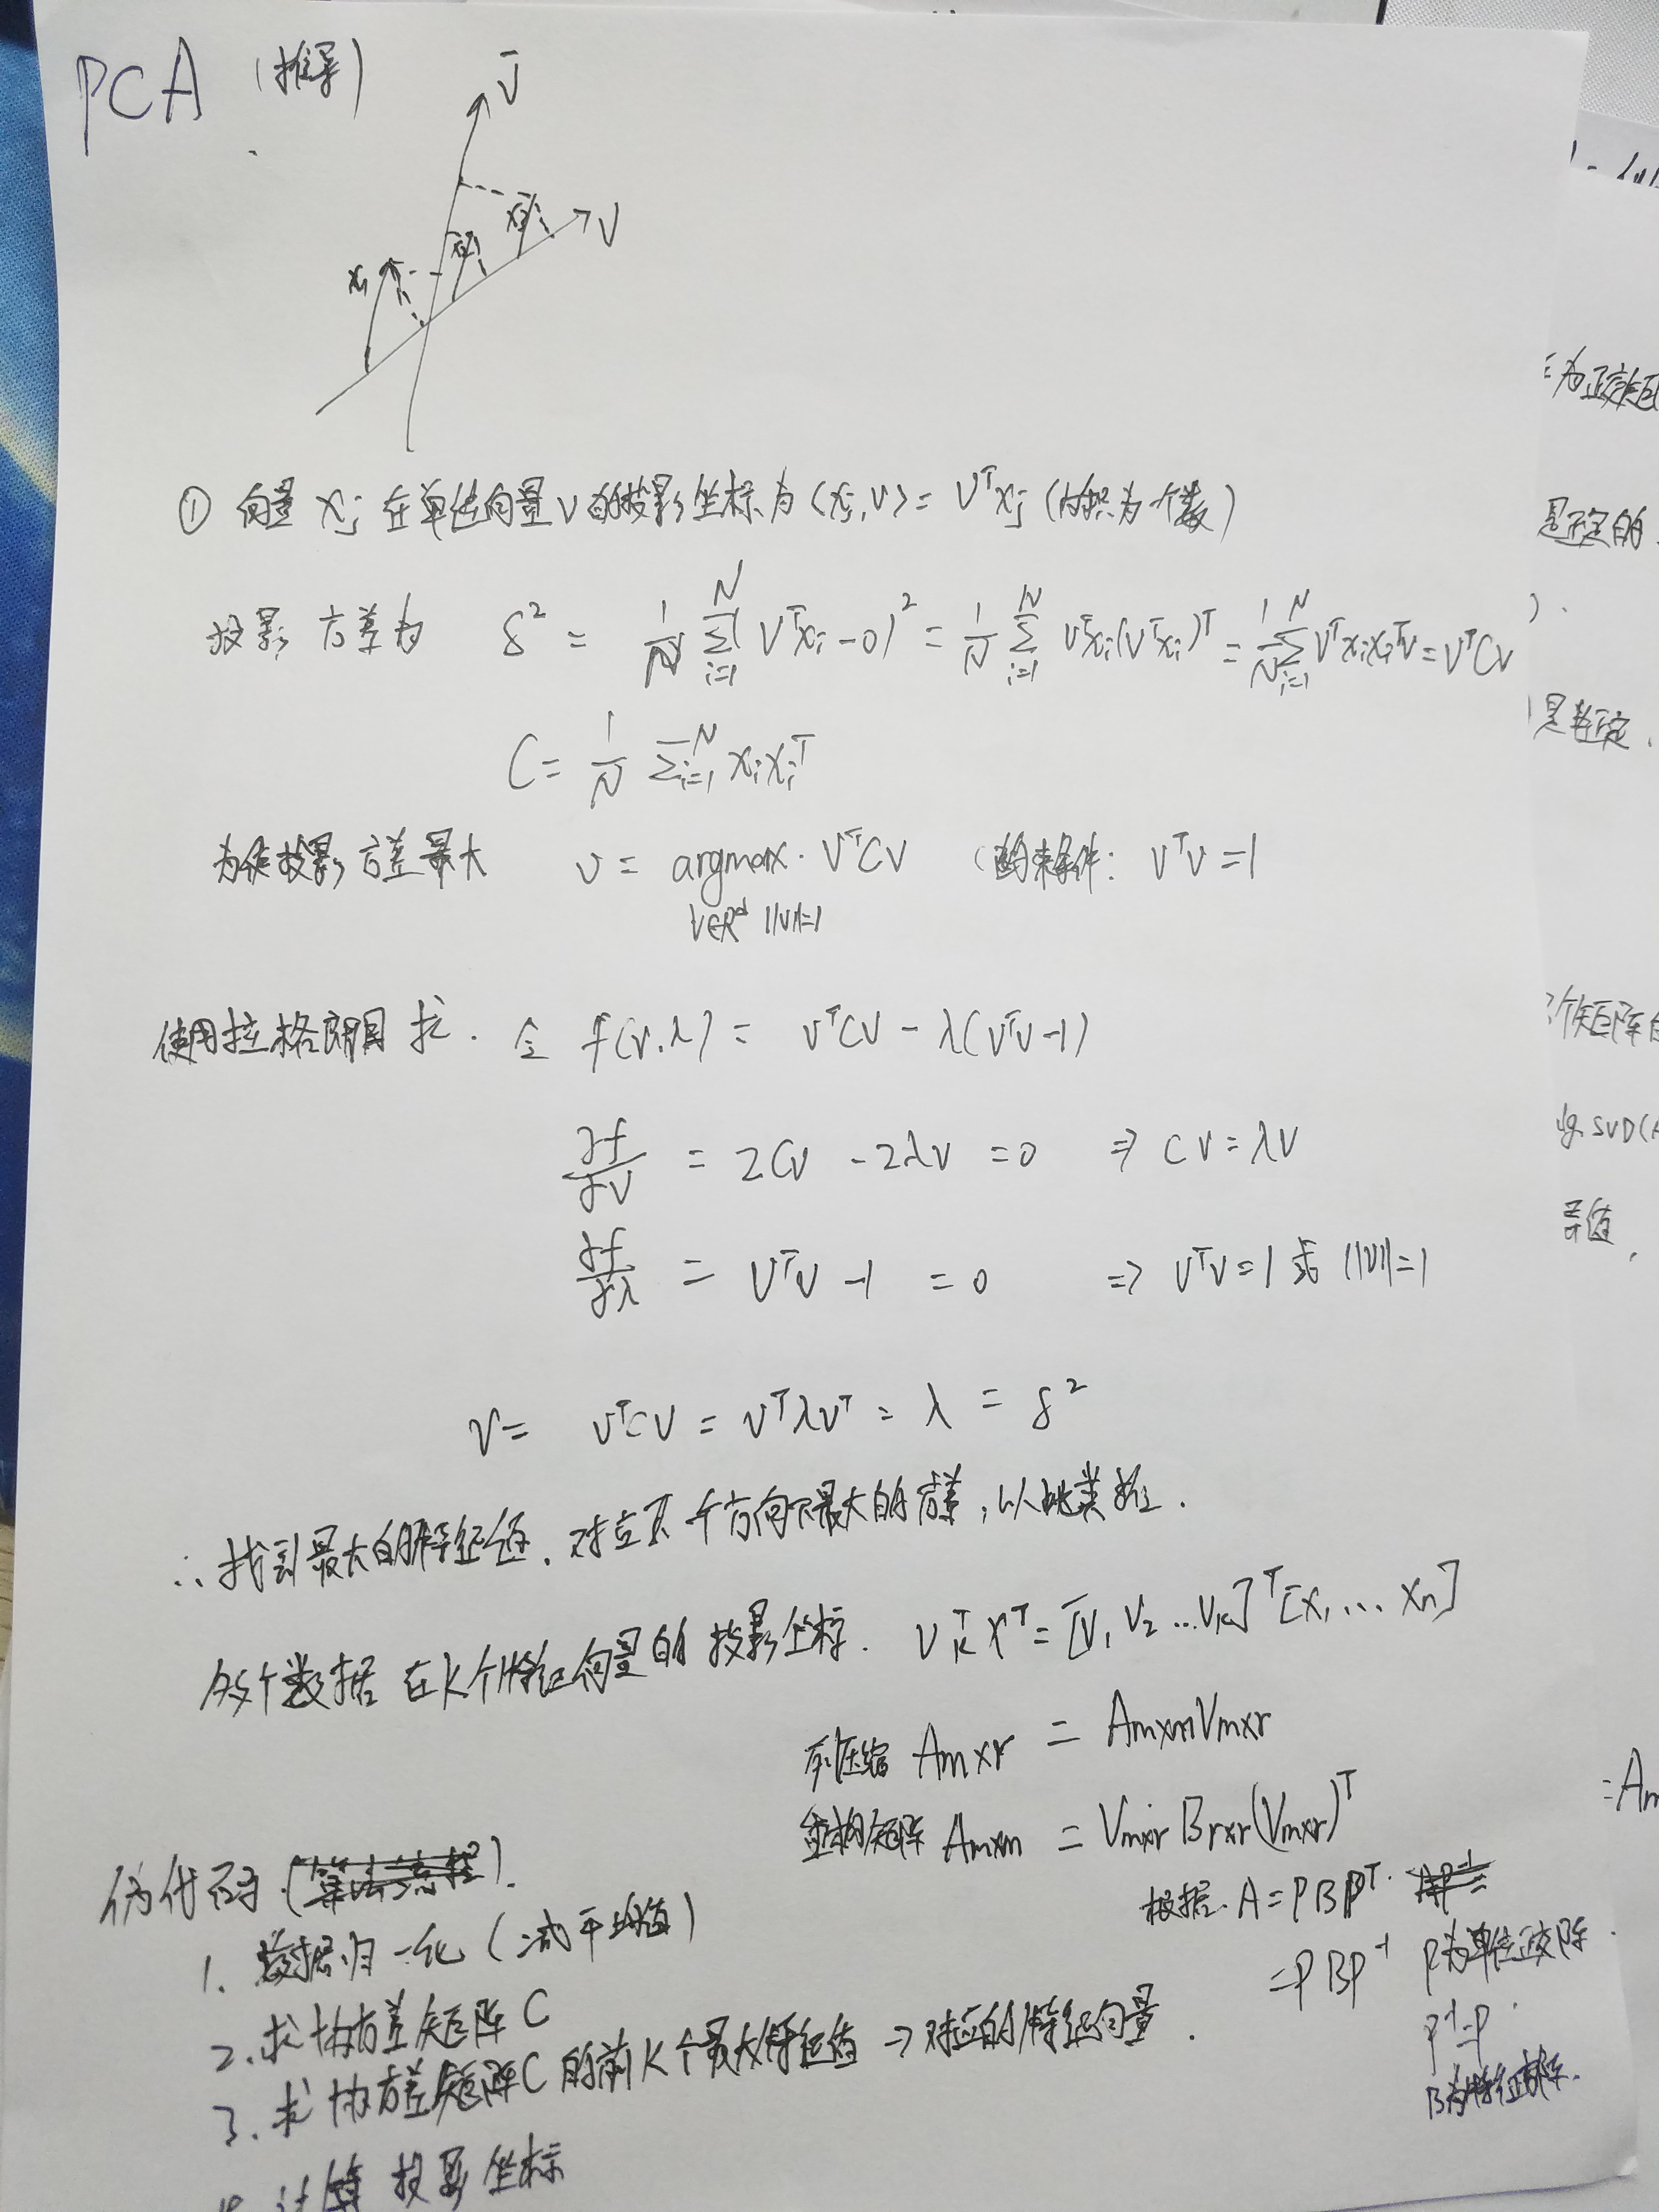 PCA (推导)
V̄
V
xi
① 向量 xj 在单位向量 v 的投影坐标为 <xj, v> = vᵀxj (内积为个数)
投影方差为 δ² = 1/N Σ_{i=1}^{N} (vᵀxi - 0)² = 1/N Σ_{i=1}^{N} vᵀxi(vᵀxi)ᵀ = 1/N Σ_{i=1}^{N} vᵀxixiᵀv = vᵀCv
C = 1/N Σ_{i=1}^{N} xixiᵀ
为使投影方差最大 v = argmax · vᵀCv (约束条件: vᵀv = 1
v∈Rᵈ ||v||=1
使用拉格朗日求. 令 f(v.λ) = vᵀCv - λ(vᵀv-1)
∂f/∂v = 2Cv - 2λv = 0 ⇒ Cv = λv
∂f/∂λ = vᵀv - 1 = 0 ⇒ vᵀv = 1 或 ||v||=1
v = vᵀCv = vᵀλvᵀ = λ = δ²
∴ 找到最大的特征值, 对应一个方向下最大的方差, 以此类推.
各个数据在K个特征向量的投影坐标. v_Kᵀxᵀ = [v₁ v₂ ... v_K]ᵀ[x₁ ... xn]
列压缩 Amxr = AmxmVmxr
重构矩阵 Amxm = Vmxr Brxr(Vmxr)ᵀ
根据. A = PBPᵀ.
= PBP⁻¹ P为单位正交阵.
B为特征矩阵.
伪代码 (算法流程).
1. 数据归一化 (减平均值)
2. 求协方差矩阵C
3. 求协方差矩阵C的前K个最大特征值 → 对应的特征向量.
计算投影坐标
=为正交矩
是正定的
是半正定.
个矩阵的
SVD(A
异值.
=Am